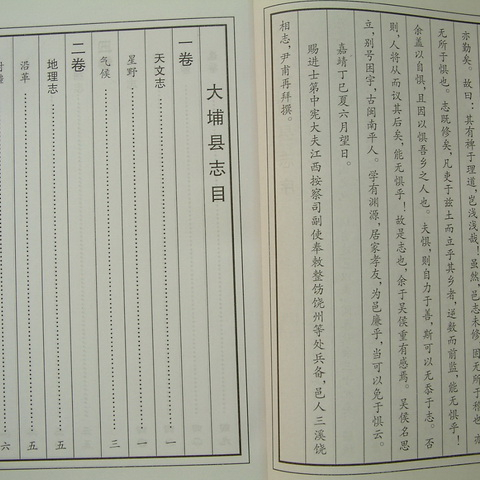 亦勤矣。故曰：其有裨于理道，岂浅浅哉！虽然，邑志未修，固无所于稽也，亦
无所于惧也。志既修矣，凡吏于兹土而立乎其乡者，逆数而前监，能无惧乎！
余盖以自惧，且因以惧吾乡之人也。夫惧，则自力于善，斯可以无忝于志。否
则，人将从而议其后矣，能无惧乎！故是志也，余于吴侯重有感焉。吴侯名思
立，别号困宇，古闽南平人。学有渊源，居家孝友，为邑廉乎，当可以免于惧云。
嘉靖丁巳夏六月望日。
赐进士第中宪大夫江西按察司副使奉敕整饬饶州等处兵备，邑人三溪饶
相志，尹甫再拜撰。
大埔县志目
一卷
天文志……………一
星野……………一
气候……………三
二卷
地理志……………五
沿革……………五
……………六